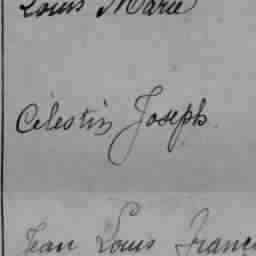 Louis Marie
Célestin Joseph
Jean Louis Franc